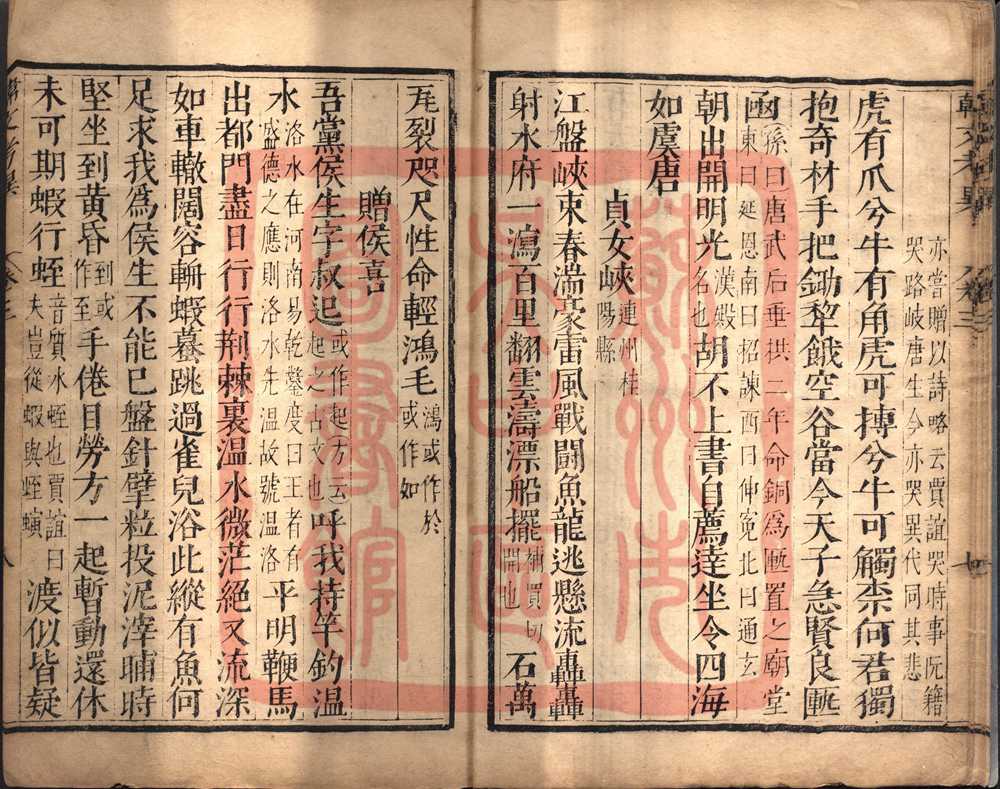 亦嘗贈以詩略云賈誼哭時事阮籍
哭路岐唐生今亦哭異代同其悲
虎有爪兮牛有角虎可搏兮牛可觸柰何君獨
抱奇材手把鋤犂餓空谷當今天子急賢良匭
函孫曰唐武后垂拱二年命銅爲匭置之廟堂
東曰延恩南曰招諫西曰伸寃北曰通玄
朝出開明光漢殿名也胡不上書自薦達坐令四海
如虞唐
貞女峽連州桂陽縣
江盤峽束春湍豪雷風戰鬬魚龍逃懸流轟轟
射水府一瀉百里翻雲濤漂船擺補買切開也石萬
瓦裂咫尺性命輕鴻毛鴻或作於或作如
贈侯喜
吾黨侯生字叔起或作起方云起之古文也呼我持竿釣温
水洛水在河南易乾鑿度曰王者有盛德之應則洛水先温故號温洛平明鞭馬
出都門盡日行行荆棘裏温水微茫絕又流深
如車轍闊容輈蝦蟇跳過雀兒浴此縱有魚何
足求我爲侯生不能已盤針擘粒投泥滓晡時
堅坐到黃昏到或作至手倦目勞方一起暫動還休
未可期蝦行蛭音質水蛭也賈誼曰夫豈從蝦與蛭螾渡似皆疑